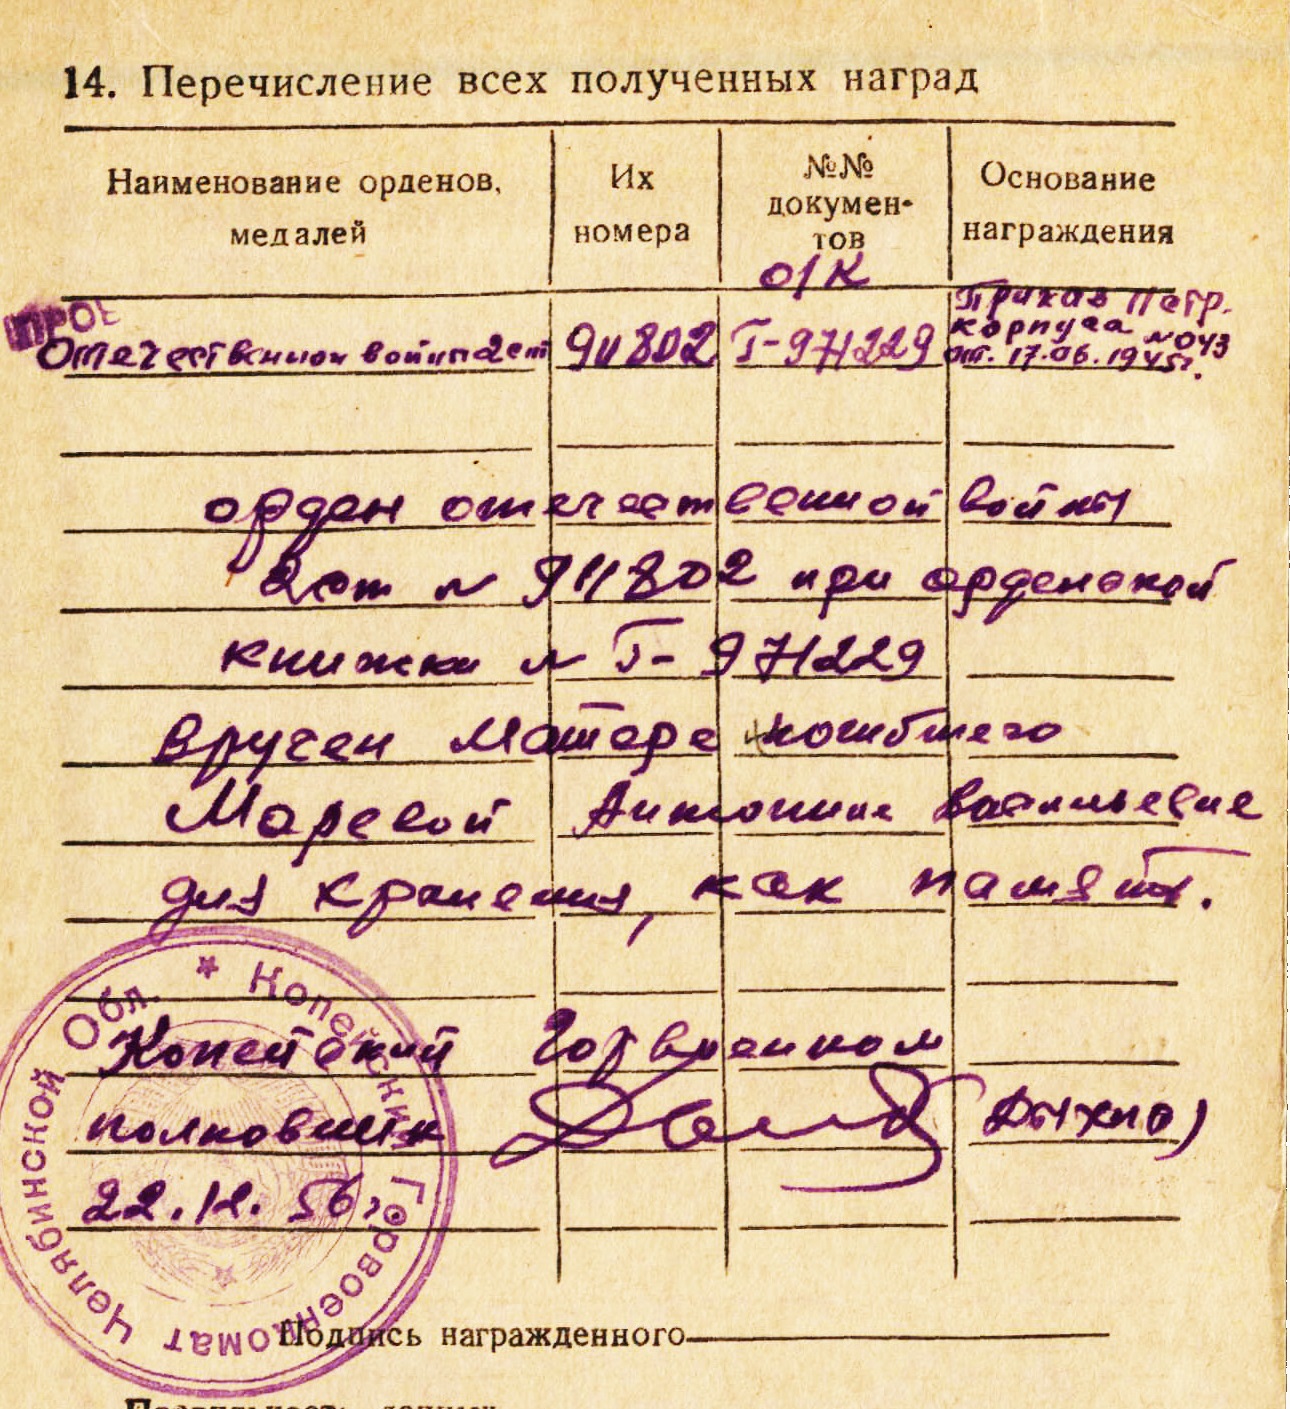 14. Перечисление всех полученных наград
Наименование орденов, медалей
Их номера
№№ докумен-тов
Основание награждения
о/к
ПРОВ
Отечественной войны 2 ст
911802
Г-971229
Приказ
корпуса № 043
от. 17.06.1945г.
орден отечественной войны
2 ст № 911802 при орденской
книжки № Г-971229
вручен матере погибшего
Маревой Антонине Васильевне
для хранения, как память.
Копейский Горвоенком
полковник
22.12.56.
Копейский Горвоенкомат Челябинской Обл.
Подпись награжденного